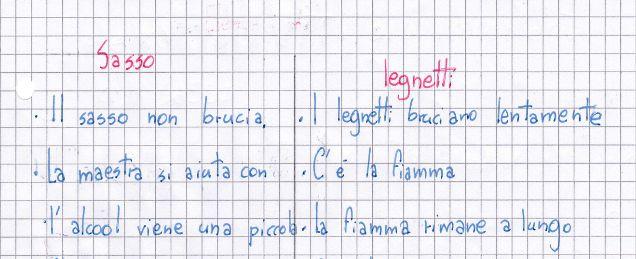 Sasso
legnetti
• Il sasso non brucia.
• La maestra si aiuta con
l'alcool viene una piccola
• I legnetti bruciano lentamente
• C'é la fiamma
• la fiamma rimane a lungo